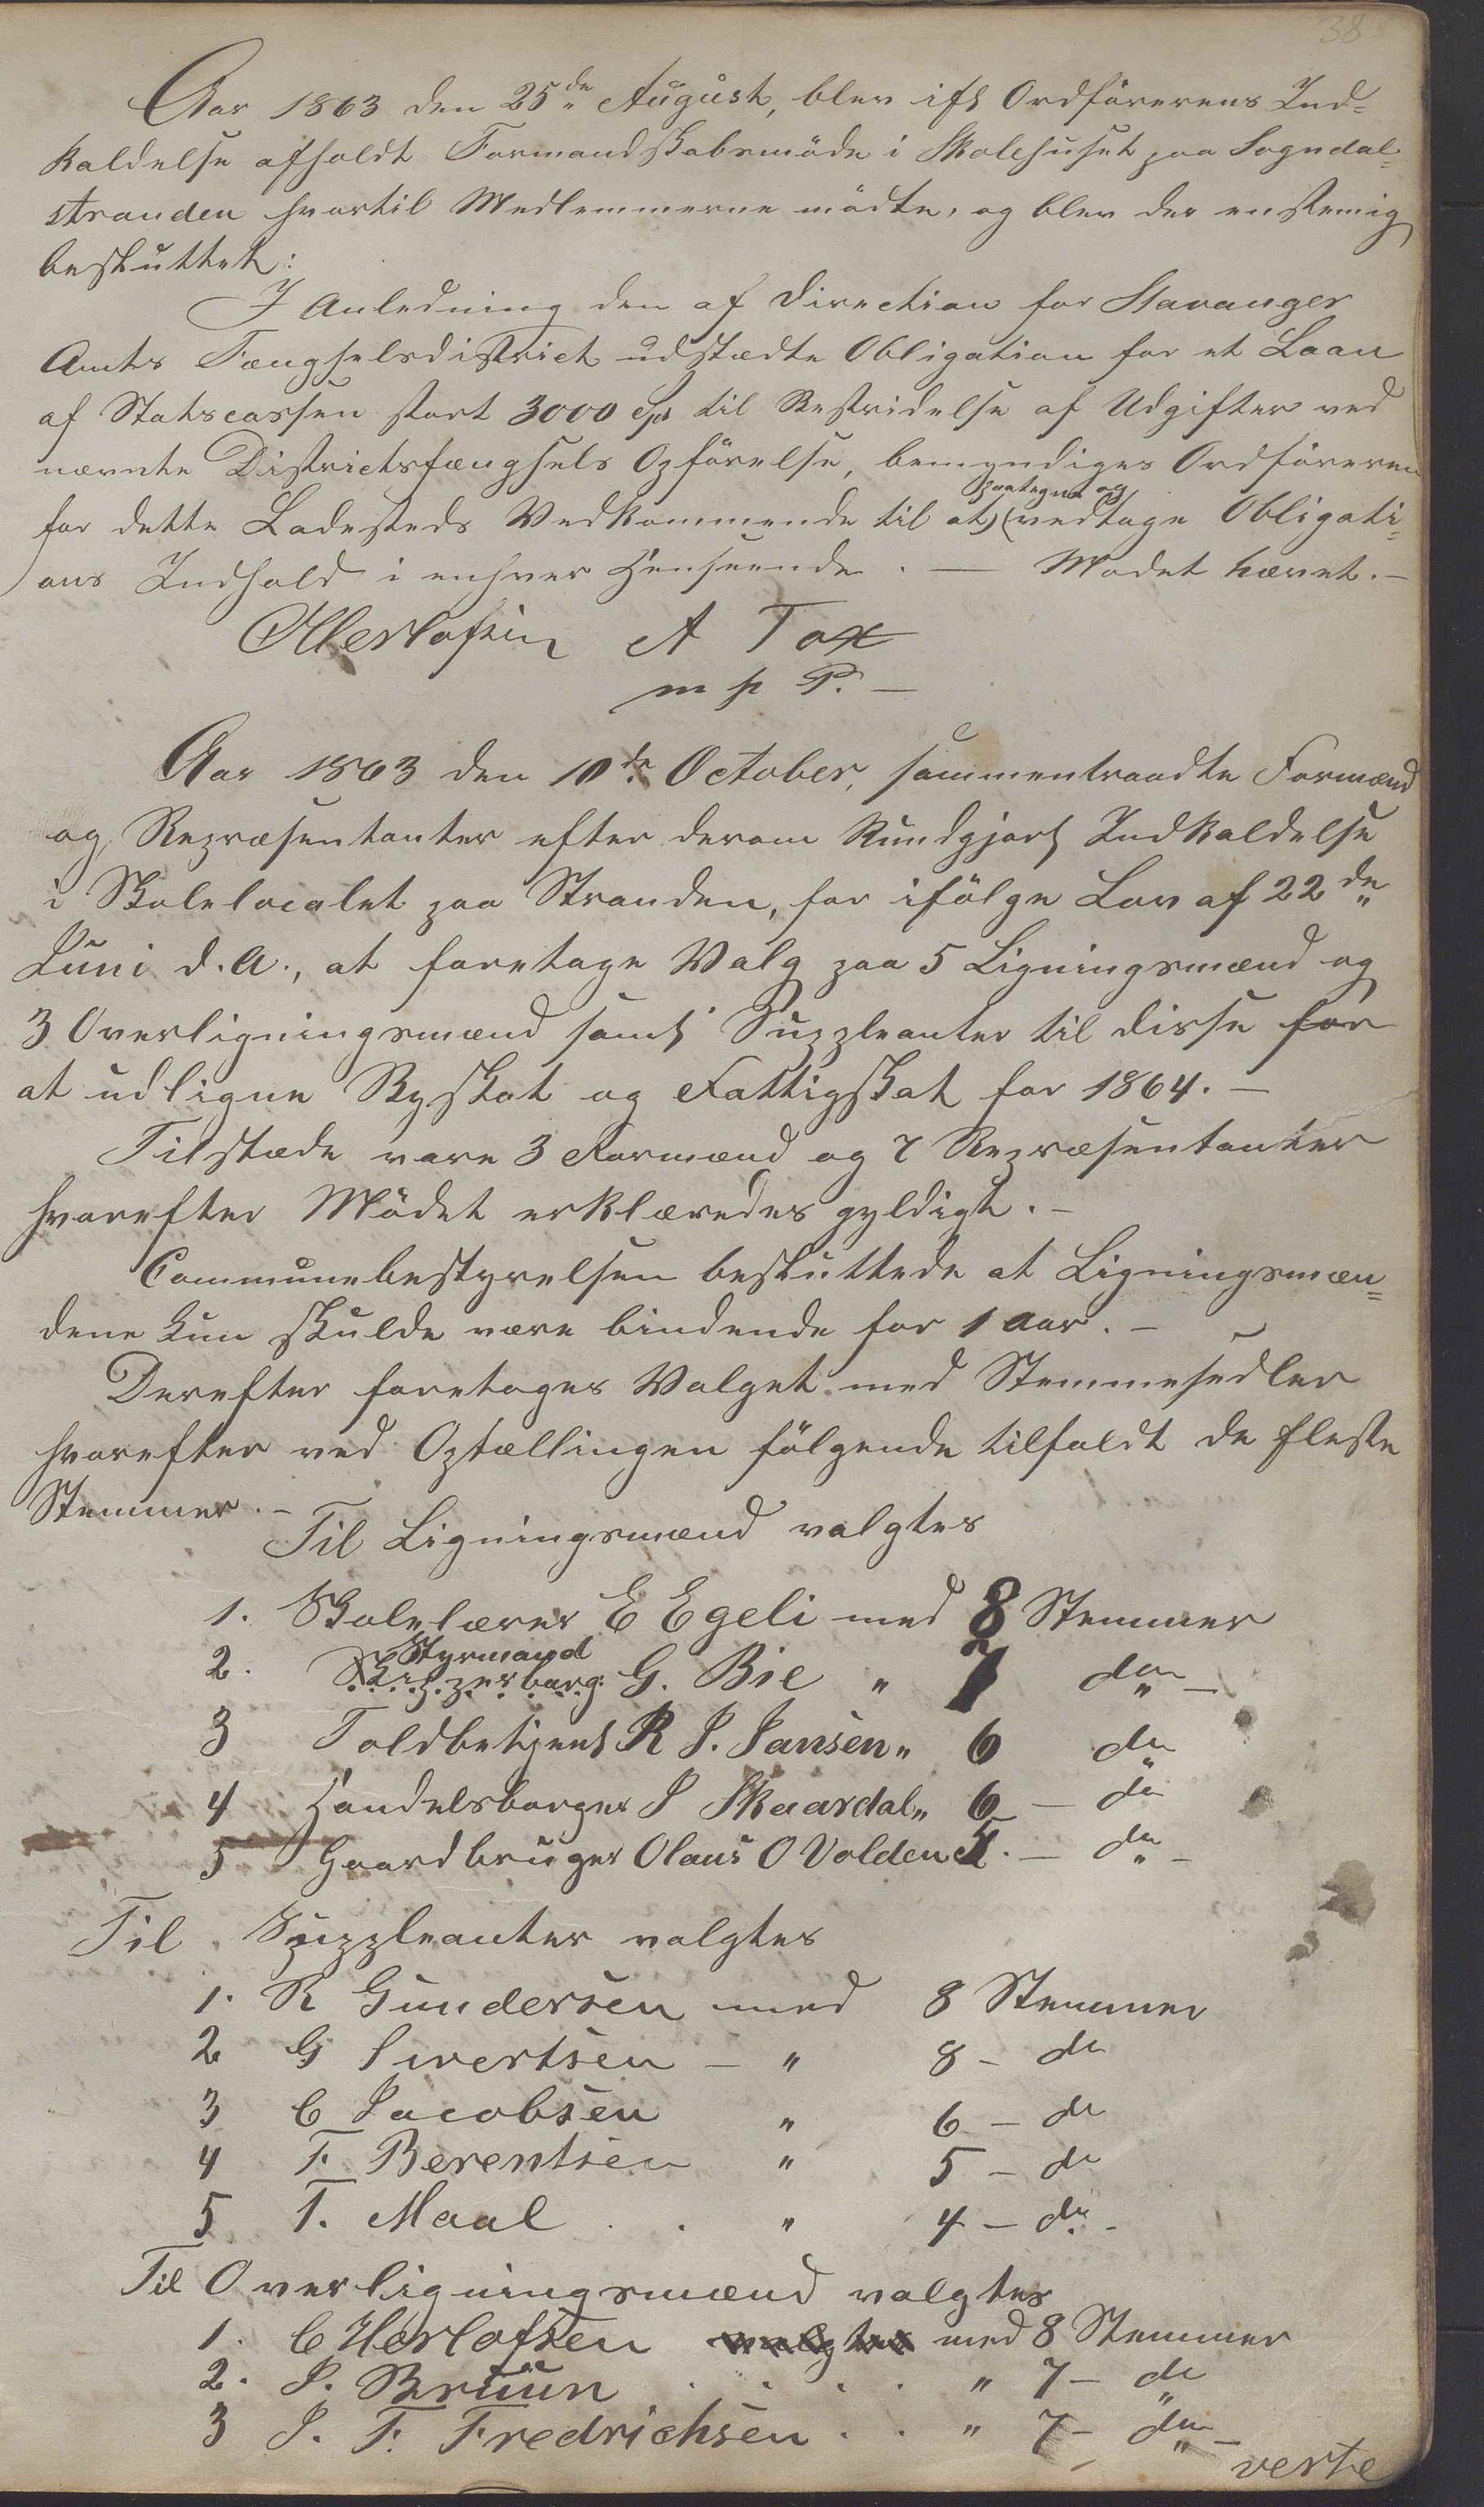 38
Aar 1863 den 25de August, blev ift Ordförerens Ind=
kaldelse afholdt Formandskabsmöde i Skolehuset paa Sogndal=
stranden hvortil Medlemmerne mödte, og blev der enstemig
besluttet:
I Anledning den af Direction for Stavanger
Amts Fængselsdistrict udstædte Obligation for et Laan
af Statscassen stort 3000 Spd til Bestridelse af Udgifter ved
nævnte Districtsfængsels Opförelse, bemyndiges Ordföreren
paategne og
for dette Ladesteds Vedkommende til at vedtage Obligati=
ons Indhold i enhver Henseende. — Mødet hævet. —
C Herlofsen A Tox
m p P. —
Aar 1863 den 10de October, sammentraadte Formænd
og Repræsentanter efter derom kundgjort Indkaldelse
i Skolelocalet paa Stranden, for ifölge Lov af 22de
Juni d.A., at foretage Valg paa 5 Ligningsmænd og
3 Overligningsmænd samt Suppleanter til disse for
at udligne Byskat og Fattigskat for 1864. —
Tilstæde vare 3 Formænd og 7 Repræsentanter
hvorefter Mödet erklæredes gyldigt. —
Communebestyrelsen besluttede at Ligningsmæn=
dene kun skulde være bindende for 1 Aar. —
Derefter foretoges Valget med Stemmesedler
hvorefter ved Optællingen fölgende tilfaldt de fleste
Stemmer. —
Til Ligningsmænd valgtes
1. Skolelærer E Egeli med 8 Stemmer
Styrmand
2. Skipperborg: G. Bie " 7 do —
3 Toldbetjent R J. Jansen " 6 do
4 Handelsborger J Skaardal " 6 — do
5 Gaardbruger Olaus O Volden 5. — do —
Til Suppleanter valgtes
1. R Gundersen med 8 Stemmer
2 G Sivertsen — " 8 — do
3 C Jacobsen " 6 — do
4 F. Berentsen " 5 — do
5 T. Maal . . " 4 — do. -
Til Overligningsmænd valgtes
1. C Herlofsen valgtes med 8 Stemmer
2. J. Bruun . . . . " 7 — do
3 J. F. Fredrichsen . . " 7 — do —
verte